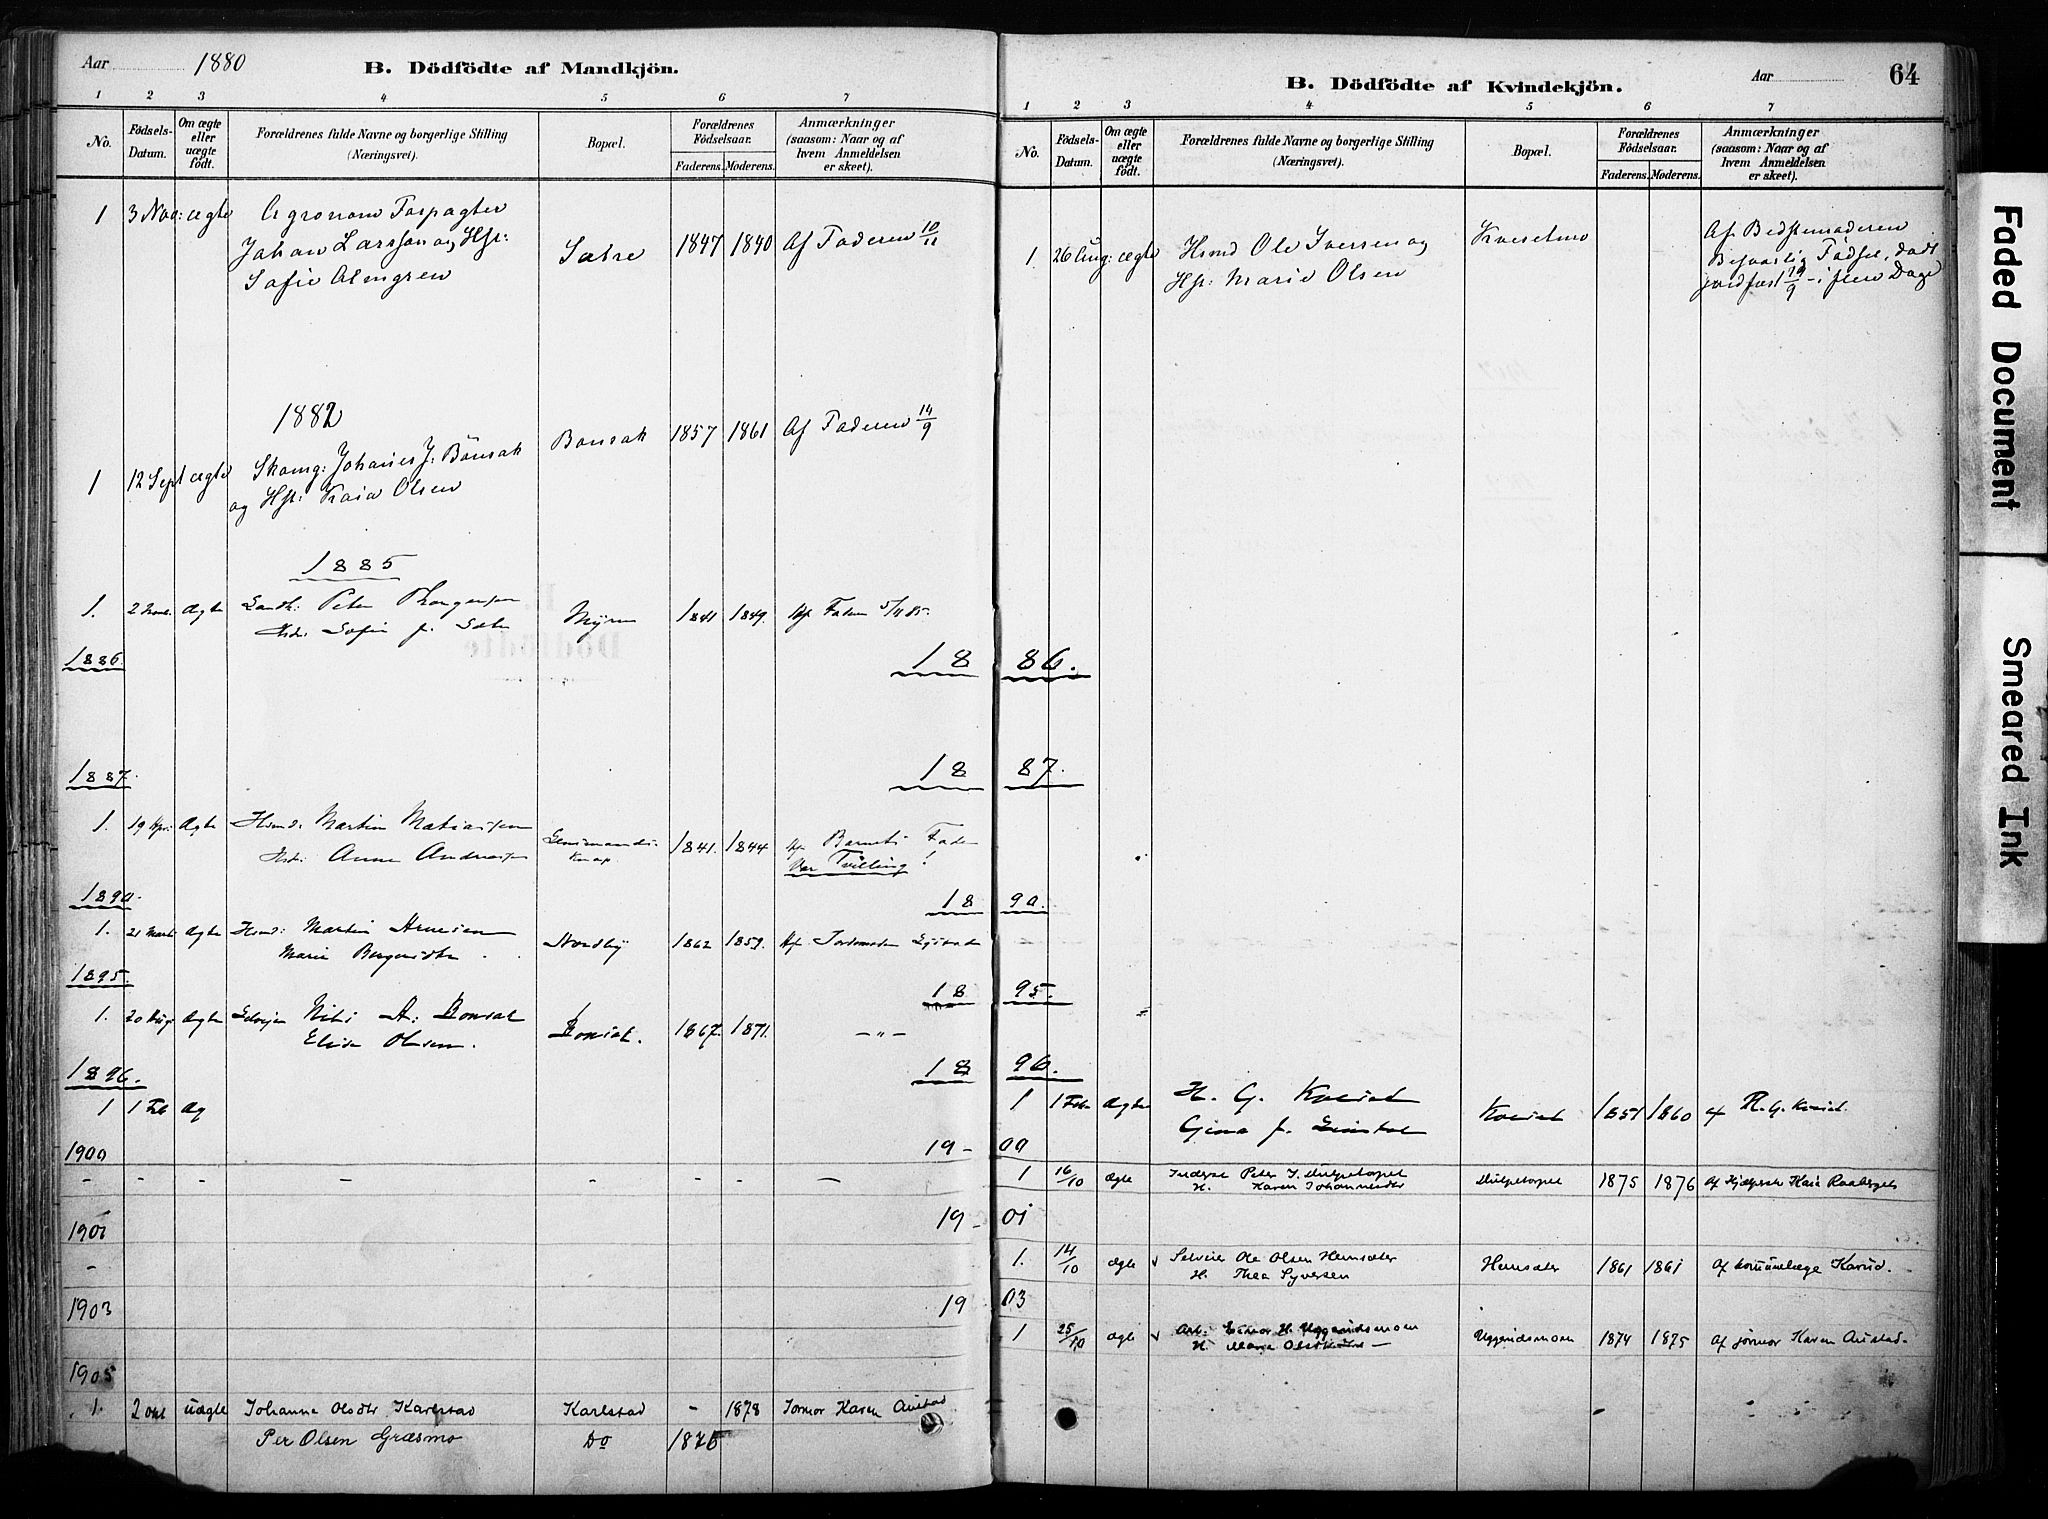 Aar 1880
B. Dödfödte af Mandkjön.
1 2 3 4 5 6 7
No.
Födsels-
Datum.
Om ægte
eller
uægte
født.
Forældrenes fulde Navne og borgerlige Stilling
(Næringsvei).
Bopæl.
Forældrenes
Fødselsaar.
Faderens. Moderens.
Anmærkninger
(saasom: Naar og af
hvem Anmeldelsen
er skeet).
1 3 Nov: ægte Agronom Forpagter
Johan Larsson og Hst:
Sofie Almgren
Sætre 1847 1840 Af Faderen 10/11
1882
1 12 Sept ægte Skomg: Johanes J: Bönsak
og Hst: Kaia Olsen
Bonsak 1857 1861 Af Faderen 14/9
1885
1. 2 Novb. Ægte Gaardb: Peter Thorgersen
Hstr: Sofie f. Sætre
Myren 1841 1849. Af Faderen 5/11 85.
1886. 18
1887. 18
1. 19 Apr: Ægte Hsmd: Martin Matiassen
Hstr: Anne Andreassen
1841. 1844 Af Barnets Fader
Var Tvilling!
1890. 18
1. 21 Marts Ægte Hsmd: Martin Arnesen
Marie Bergersdtr.
Nordby 1862 1859. Af Jordemoder
1895. 18
1. 20 Aug Ægte Selvejer Nils A: Bonsak
Elise Olsen.
Bonsak. 1867. 1871. — „ —
1896. 18
1 1 Feb Æg
1900 19 -
- - - - - - - -
1901 19 -
-
1903 19
1905
1. 2 okt uægte Johanne Olsdtr Karlstad Karlstad - 1878 Jormor Karen Austad
Per Olsen Græsmo Do 1876
B. Dödfödte af Kvindekjön.
Aar 64
1 2 3 4 5 6 7
No.
Fødsels-
Datum.
Om ægte
eller
uægte
født.
Forældrenes fulde Navne og borgerlige Stilling
(Næringsvei).
Bopæl.
Forældrenes
Fødselsaar.
Faderens. Moderens.
Anmærkninger
(saasom: Naar og af
hvem Anmeldelsen
er skeet).
1 26 Aug: ægte Hsmd Ole Iversen og
Hst: Marie Olsen
Af Bedstemoderen
Besværlig Födsel, död
jordfæst 19/9 - i flere Dage
86.
87.
90.
95.
96.
1 1 Feb. Ægte H. G. Kveset
Gina f.
Kveset 1851 1860 af H. G. Kveset.
00
1 16/10 ægte Inderst Peter J. Mulpetorpet
H. Karen Johannesdtr
Mulpetorpet 1875 1876 Af Hjælpek. Kari Raaberget
01
1. 14/10 ægte v Selveier Ole Olsen Hemsæter
H. Thea Syversen
Hemsæter 1861 1861 Af kommunelæge Karud.
03
1 25/10 ægte v Arb: Einar H. Uggerudsmoen
H. Marie
Uggerudsmoen 1874 1875 Af jormor Karen Austad.
Faded Document
Smeared Ink